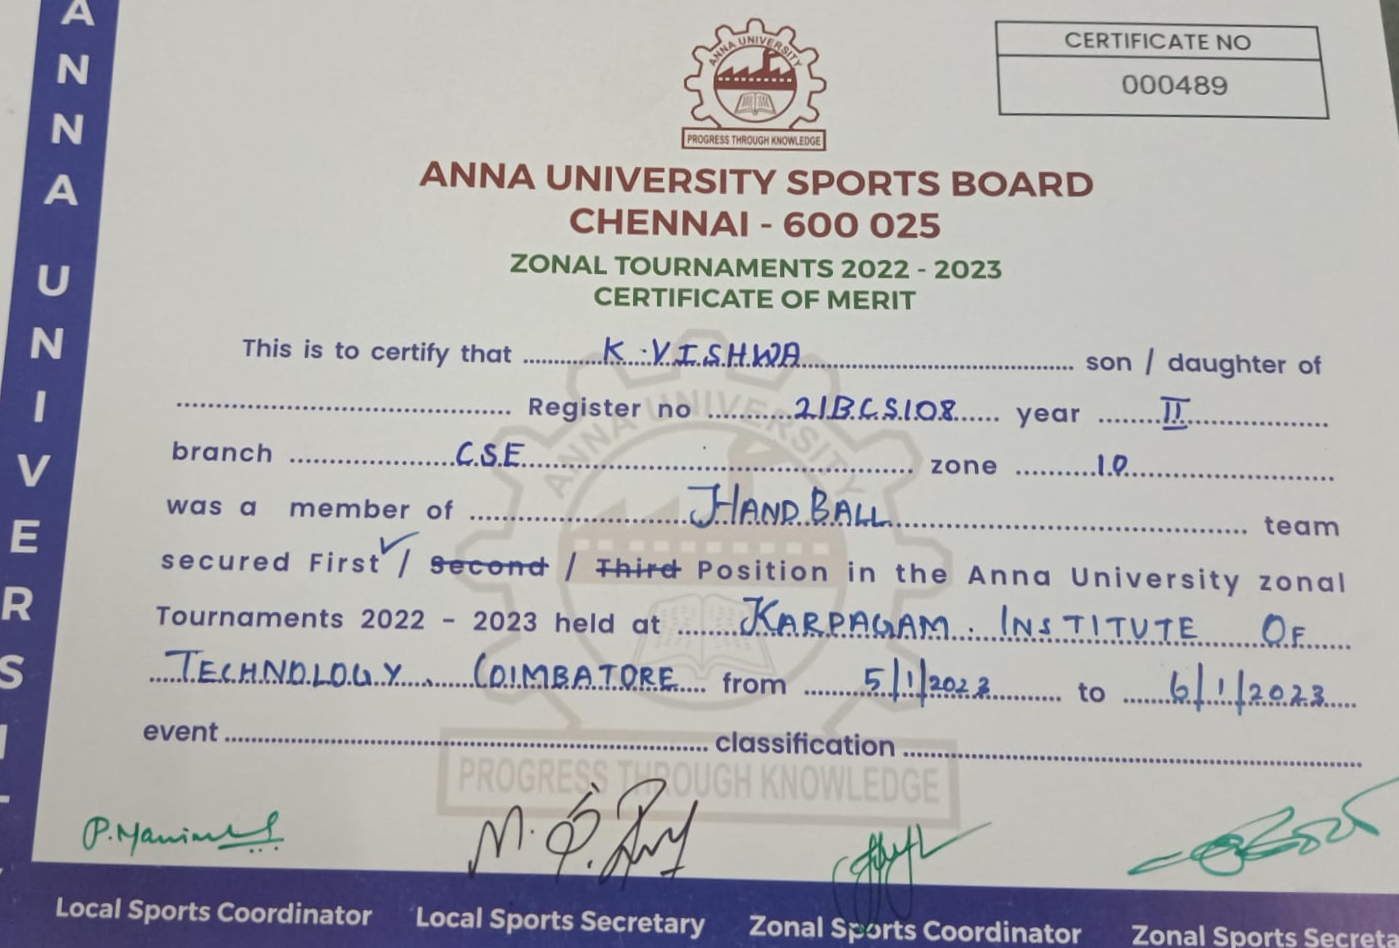 ANNA UNIVERSIT
ANNA UNIVERSITY
PROGRESS THROUGH KNOWLEDGE
CERTIFICATE NO
000489
ANNA UNIVERSITY SPORTS BOARD
CHENNAI - 600 025
ZONAL TOURNAMENTS 2022 - 2023
CERTIFICATE OF MERIT
This is to certify that K.VISHWA son / daughter of
Register no 21BCS108 year II
branch CSE zone 10
was a member of HAND BALL team
secured First ✓ / Second / Third Position in the Anna University zonal
Tournaments 2022 - 2023 held at KARPAGAM INSTITUTE OF
TECHNOLOGY, COIMBATORE from 5/1/2023 to 6/1/2023
event classification
ANNA UNIVERSITY
PROGRESS THROUGH KNOWLEDGE
Local Sports Coordinator Local Sports Secretary Zonal Sports Coordinator Zonal Sports Secreta